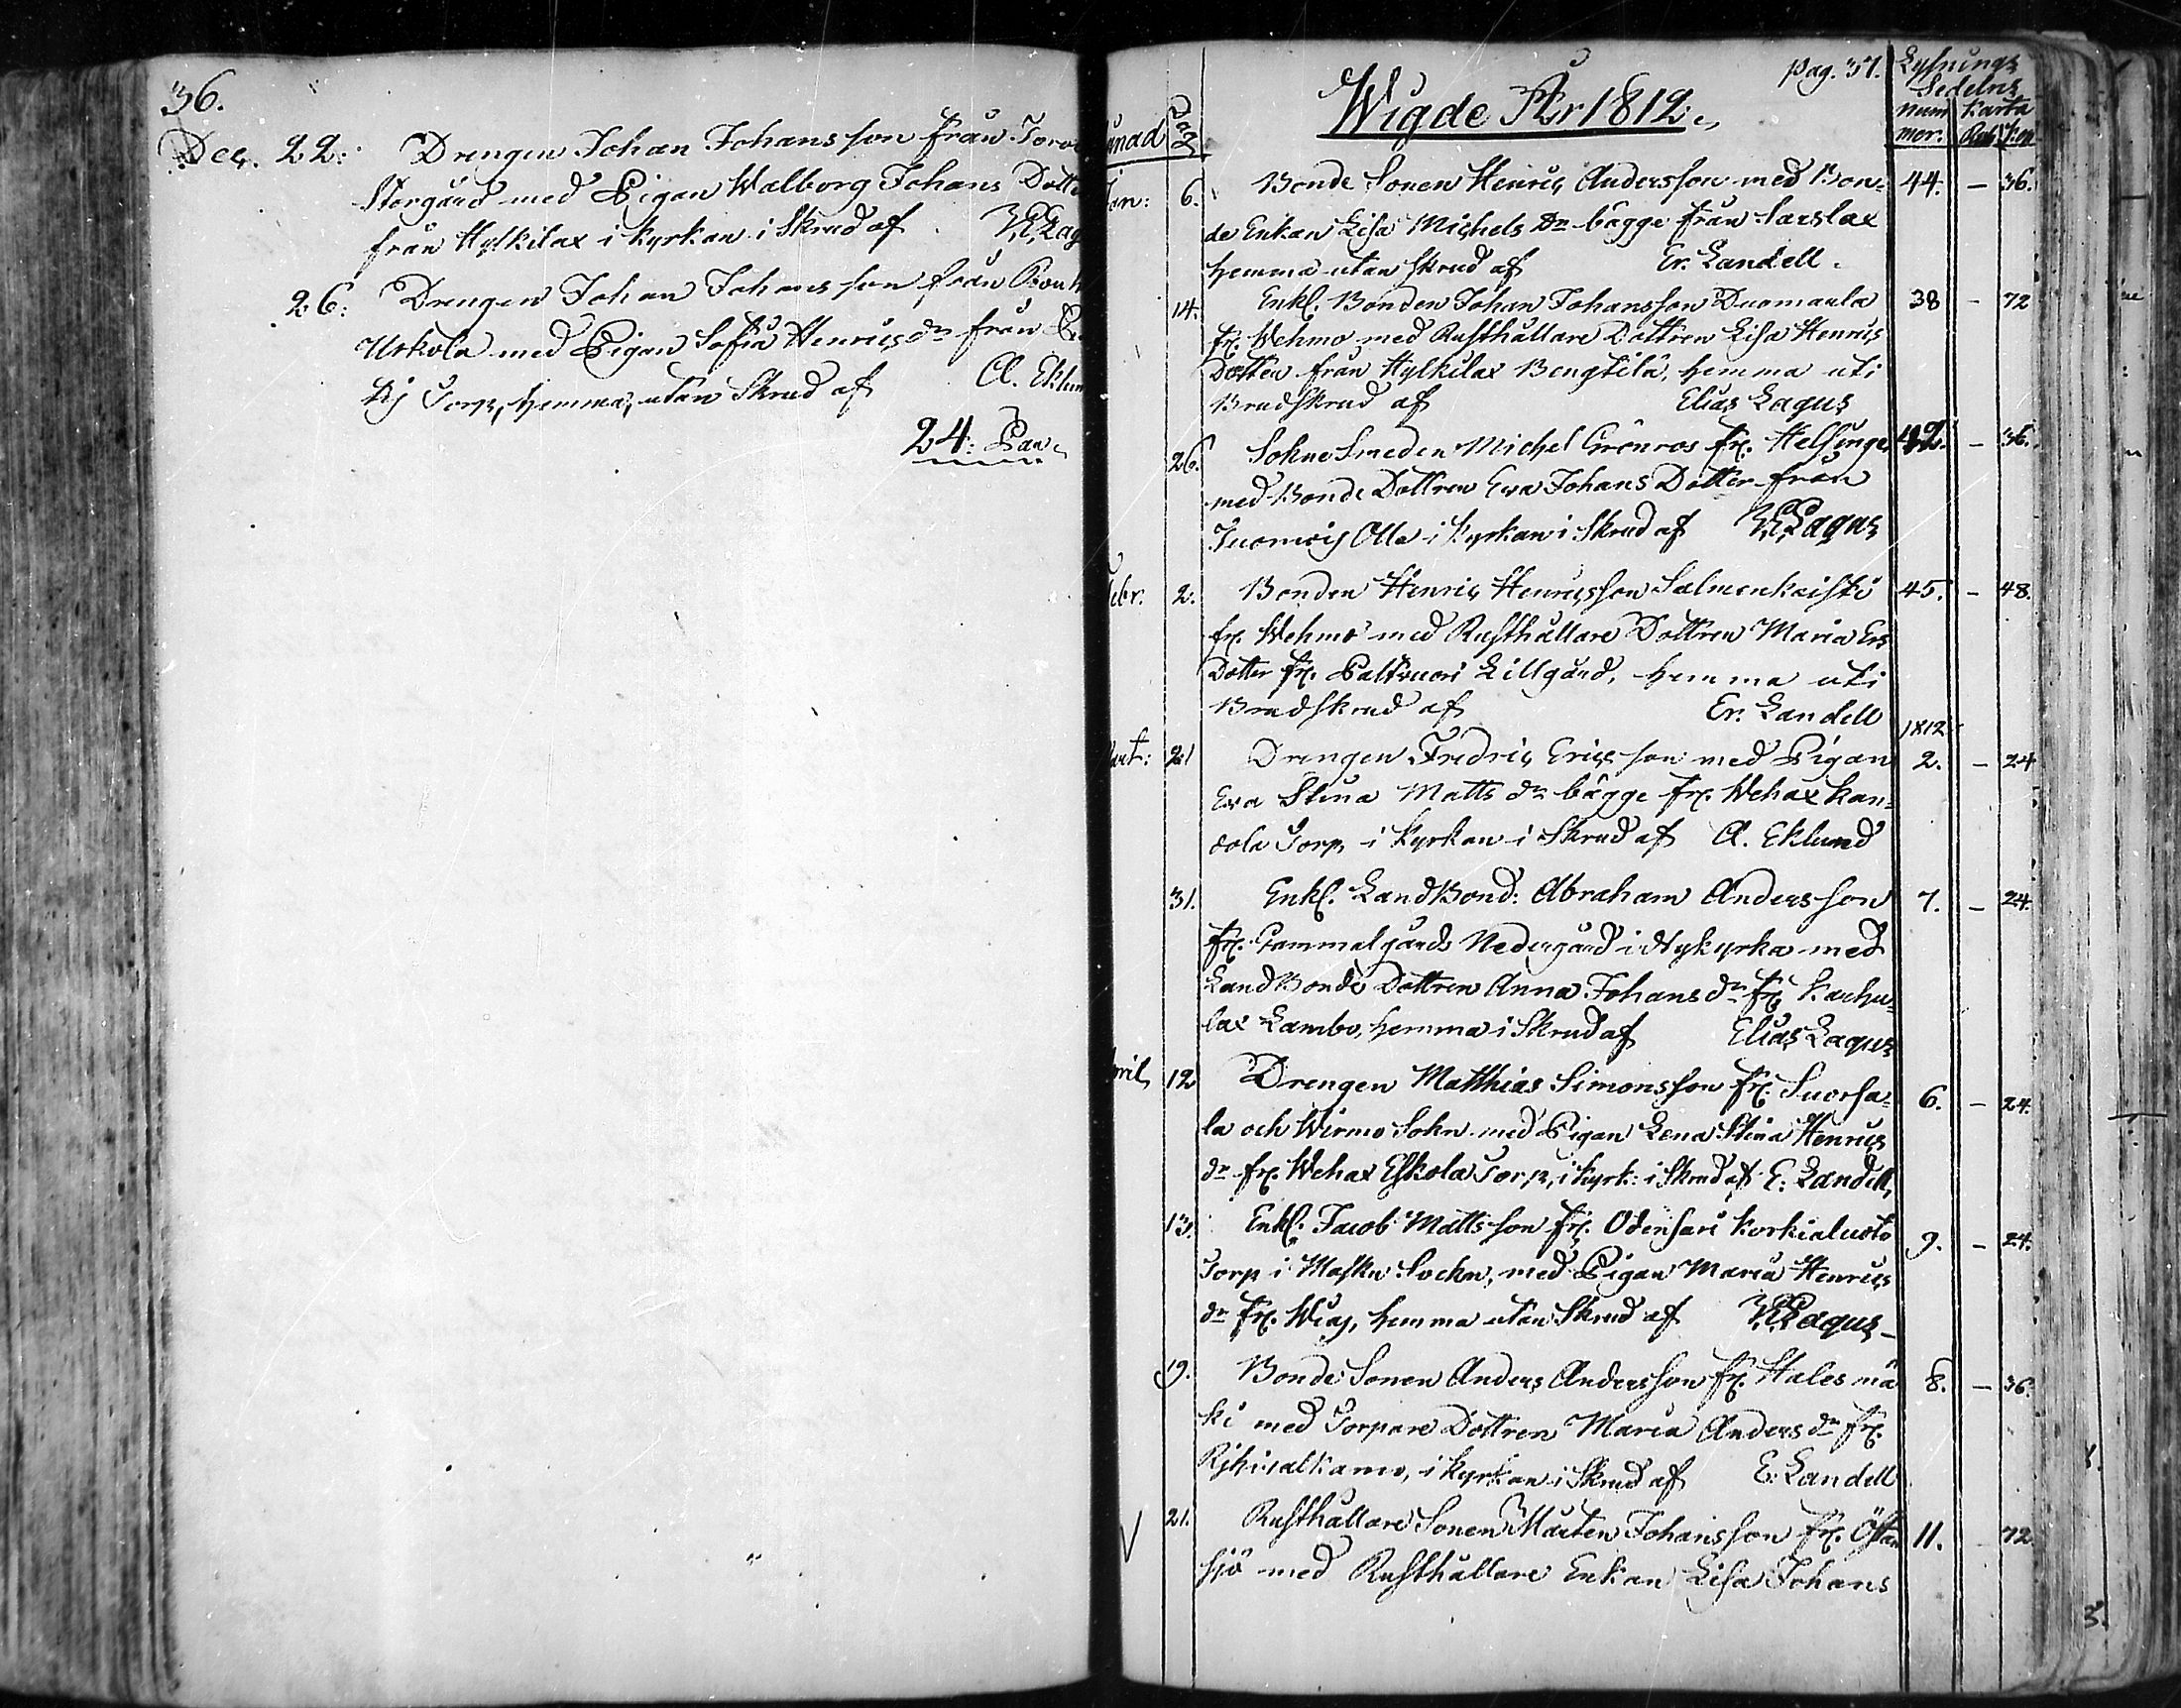 36.
Dec. 22: Drengen Johan Johansson från
Storgård med Pigan Walborg Johans
från Hylkilax i kyrkan i Skrud af
26: Drengen Johan Johansson från
Uskola med Pigan Sofia Henrics dr från
Torp, hemma, utan Skrud af A. Eklun
24: Par
pag. 37.
Wigde År 1812.
Lysnings
Sedelns
num
mer. karta
Rub. Kop
Dag
Jan: 6. Bonde Sonen Henric Andersson med Bon= 44. - 36.
de Enkan Lisa Michels Dr bägge från Sarslax
hemma utan skrud af Er. Landell.
14. Enkl. Bonden Johan Johansson Duomaula 38 - 72
fr. Wehmo med Rusthållare Dottren Lisa Henrics
Dotter från Hylkilax Bengtilä, hemma uti
Brudskrud af Elias Lagus
26. Sokne Smeden Michel Grönroos fr. Helsinge 42. - 36.
med Bonde Dottren Eva Johans Dotter från
Olla i kyrkan i Skrud af Lagus
Febr. 2. Bonden Henric Henricsson Salmenkeisti 45. - 48.
fr. Wehmo med Rusthållare Dottren Maria Ers
Dotter fr. Paltvuori Lillgård, hemma uti
Brudskrud af Er. Landell
1812
Mart: 21 Drengen Fredric Ericsson med Pigan 2. - 24
Eva Stina Matts dr bägge fr. Wehax Kan=
dola Torp, i kyrkan i Skrud af A. Eklund
31. Enkl. LandBond: Abraham Andersson 7. - 24.
fr. Gammalgårds Nedergård i Nykyrka med
LandBonde Dottren Anna Johans dr fr.
lax Lambo, hemma i Skrud af Elias Lagus
April 12 Drengen Matthias Simonsson fr. Suorsa= 6. - 24.
la och Wirmo Sokn med Pigan Lena Stina Henrics
dr fr. Wehax Eskola Torp, i kyrk: i Skrud af E. Landell,
13. Enkl. Jacob Mattsson fr. Odensari Korkialuoto 9. - 24.
Torp i Masku Sockn, med Pigan Maria Henrics
dr fr. Wiaj, hemma utan Skrud af Lagus
19. Bonde Sonen Anders Andersson fr. Hales mä 8. - 36.
ki med Torpare Dottren Maria Anders dr fr.
i kyrkan i Skrud af E. Landell
21. Rusthållare Sonen Mårten Johansson fr. Östan 11. 72
sjö med Rusthållare Enkan Lisa Johans